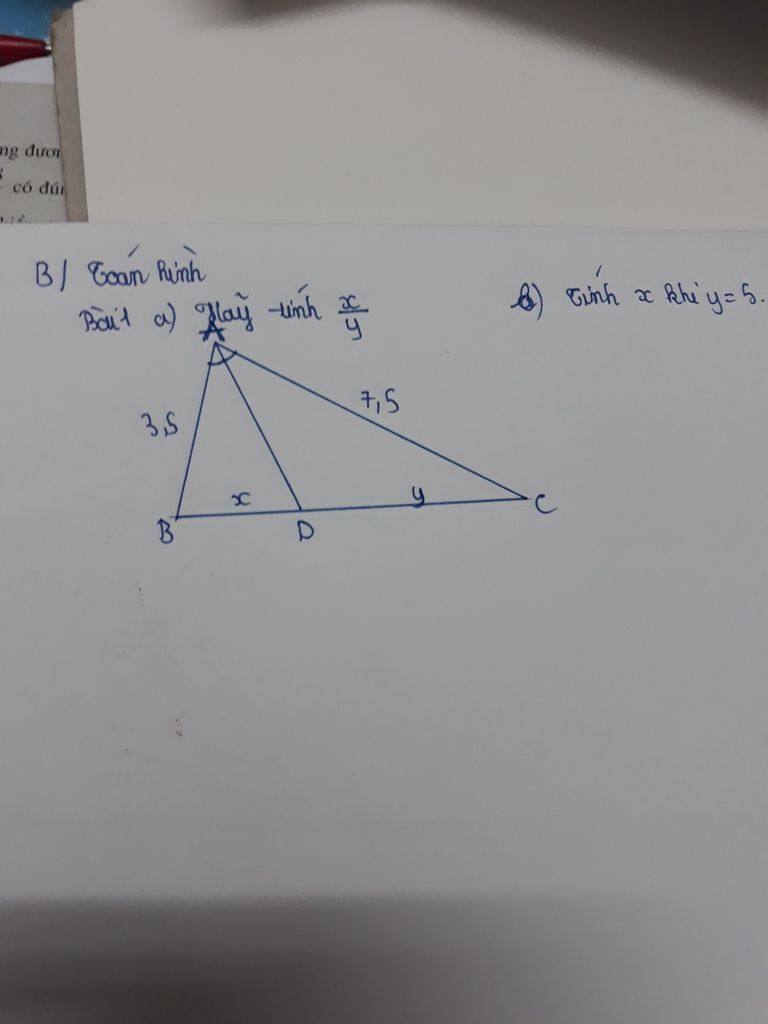 ng đươn
có đún
B/ Toán hình
Bài 1 a) Hãy tính x/y
b) Tính x khi y = 5.
A
3,5
7,5
x
y
B
D
C